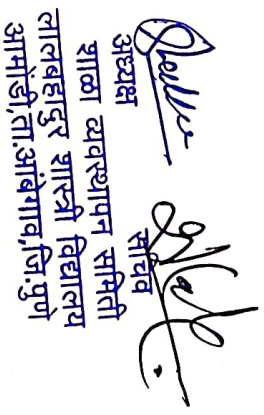 अध्यक्ष सचिव
शाळा व्यवस्थापन समिती
लालबहादुर शास्त्री विद्यालय
आमोंडी,ता.आंबेगाव,जि.पुणे